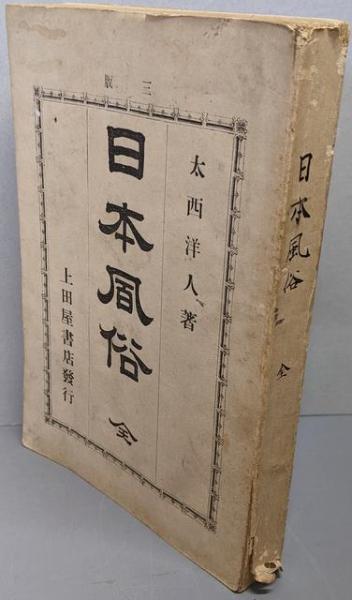 三版
太西洋人著
日本風俗 全
上田屋書店發行
日本風俗
全